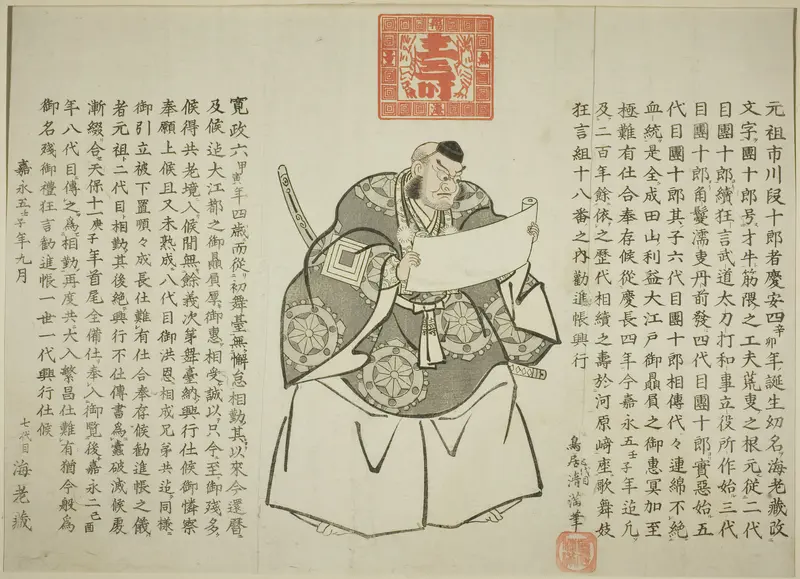 元祖市川段十郎者慶安四辛卯年誕生幼名海老藏改
文字團十郎号才牛筋隈之工夫荒叓之根元従二代
目團十郎續狂言武道太刀打和事立役所作始三代
目團十郎角鬘濡叓丹前發四代目團十郎實惡始五
代目團十郎其子六代目團十郎相傳代々連綿不絶
血統是全成田山利益大江戸御贔屓之御惠冥加至
極難有仕合奉存候從慶長四年今嘉永五壬子年迄九
及二百年餘依之歴代相續之壽於河原崎座歌舞妓
狂言組十八番之內勸進帳興行
鳥居清満筆
寛政六甲寅年四歳而從初舞臺無懈怠相勤其以來今還暦
及候迠大江都之御贔屓厚御惠相受誠以只今至御殘多
候得共老境入候間無餘義次第舞臺納興行仕候御憐察
奉願上候且又未熟成八代目御洪恩相成兄弟共迠同様
御引立被下置順々成長仕難有仕合奉存候勸進帳之儀
者元祖二代目相勤其後絶興行不仕傳書為蠹破滅候處
漸綴合天保十一庚子年首尾全備仕奉入御覧後嘉永二己酉
年八代目傳之為相勤再度共大入繁昌仕難有猶今般為
御名殘御禮狂言勸進帳一世一代興行仕候
嘉永五壬子年九月
七代目 海老藏